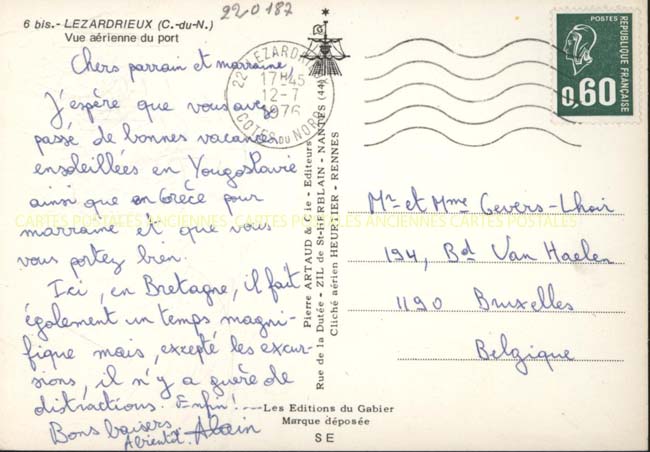 220187
6 bis.- LEZARDRIEUX (C.-du-N.)
Vue aérienne du port
Chers parrain et marraine,
J'espère que vous avez
passé de bonnes vacances
ensoleillées en Yougoslavie
ainsi que en Grèce pour
marraine et que vous
vous portez bien.
Ici, en Bretagne, il fait
également un temps magni-
fique mais, excepté les excur-
sions, il n'y a guère de
distractions. Enfin!
Bons baisers.
Abientôt. Alain
22 LEZARDRIEUX
17H45
12-7
1976
COTES DU NORD
Pierre ARTAUD & Cie - Editeurs
Rue de la Dutée - ZIL de St-HERBLAIN - NANTES (44)
Cliché aérien HEURTIER - RENNES
POSTES
REPUBLIQUE FRANÇAISE
0,60
Mr et Mme Gevers-Lhoir
194, Bd Van Haelen
1190 Bruxelles
Belgique
Les Editions du Gabier
Marque déposée
S E
CARTES POSTALES ANCIENNES CARTES POSTALES ANCIENNES CARTES POSTALES